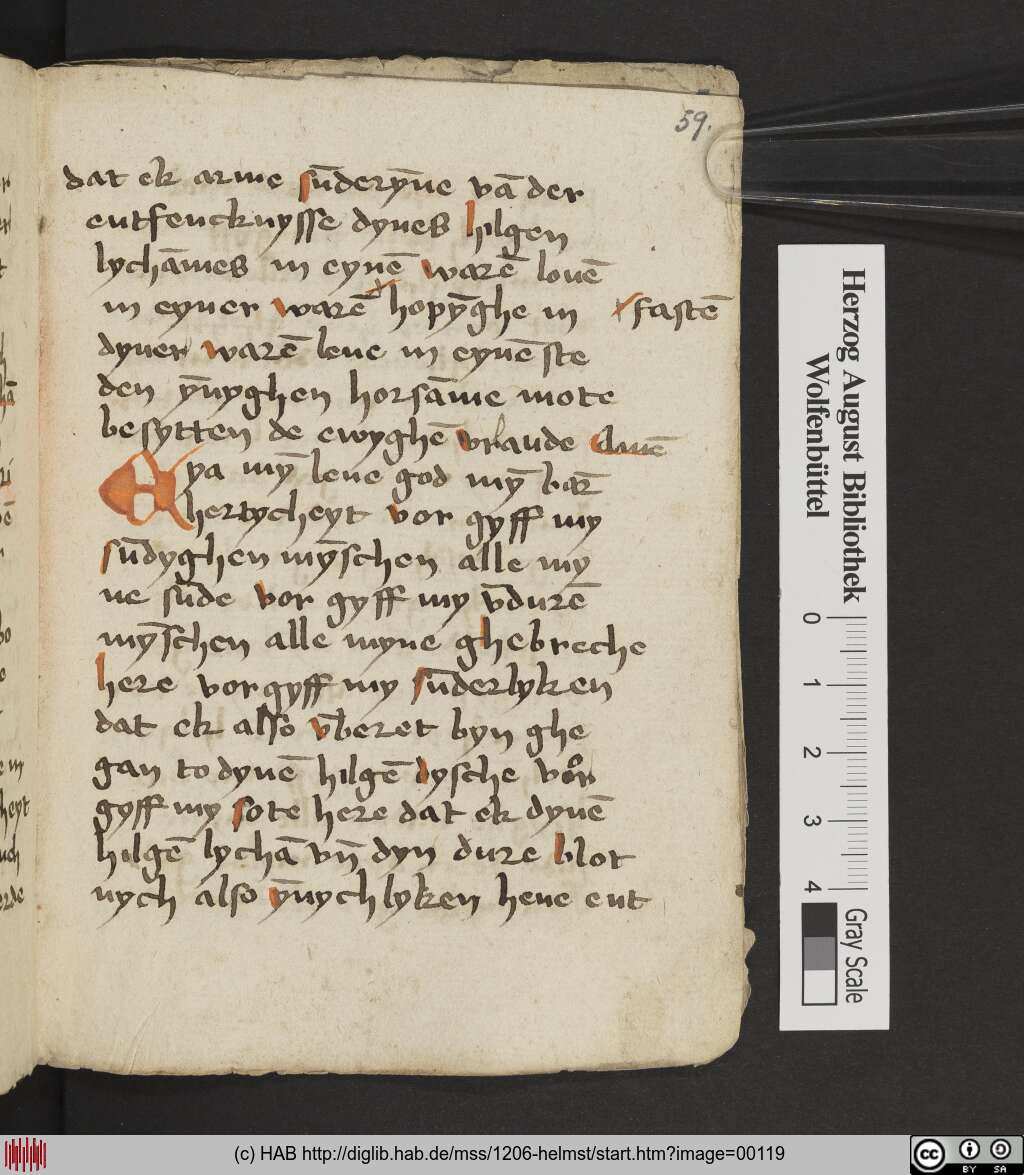 59.
dat ek arme sūderȳne vā der
entfencknysse dynes hilgen
lychāmes in eynē warē lovē
in eyner warē hopȳghe in fastē
dyner warē leve in eynē ste
den ȳnyghen horsāme mote
besytten de ewyghē vraude Amē
Eya mȳ leve god mȳ bar̄
hertycheyt vor gyff my
sūdyghen mȳschen alle my
ne sūde vor gyff my v̄durē
mȳschen alle myne ghebreche
here vorgyff my sūderlyken
dat ek also v̄beret byn ghe
gan to dynē hilgē dysche vor
gyff my sote here dat ek dynē
hilgē lychā vn̄ dyn dure blot
nych also ȳnychlyken heve ent
Herzog August Bibliothek
Wolfenbüttel
0 1 2 3 4
Gray Scale
(c) HAB http://diglib.hab.de/mss/1206-helmst/start.htm?image=00119
cc BY SA